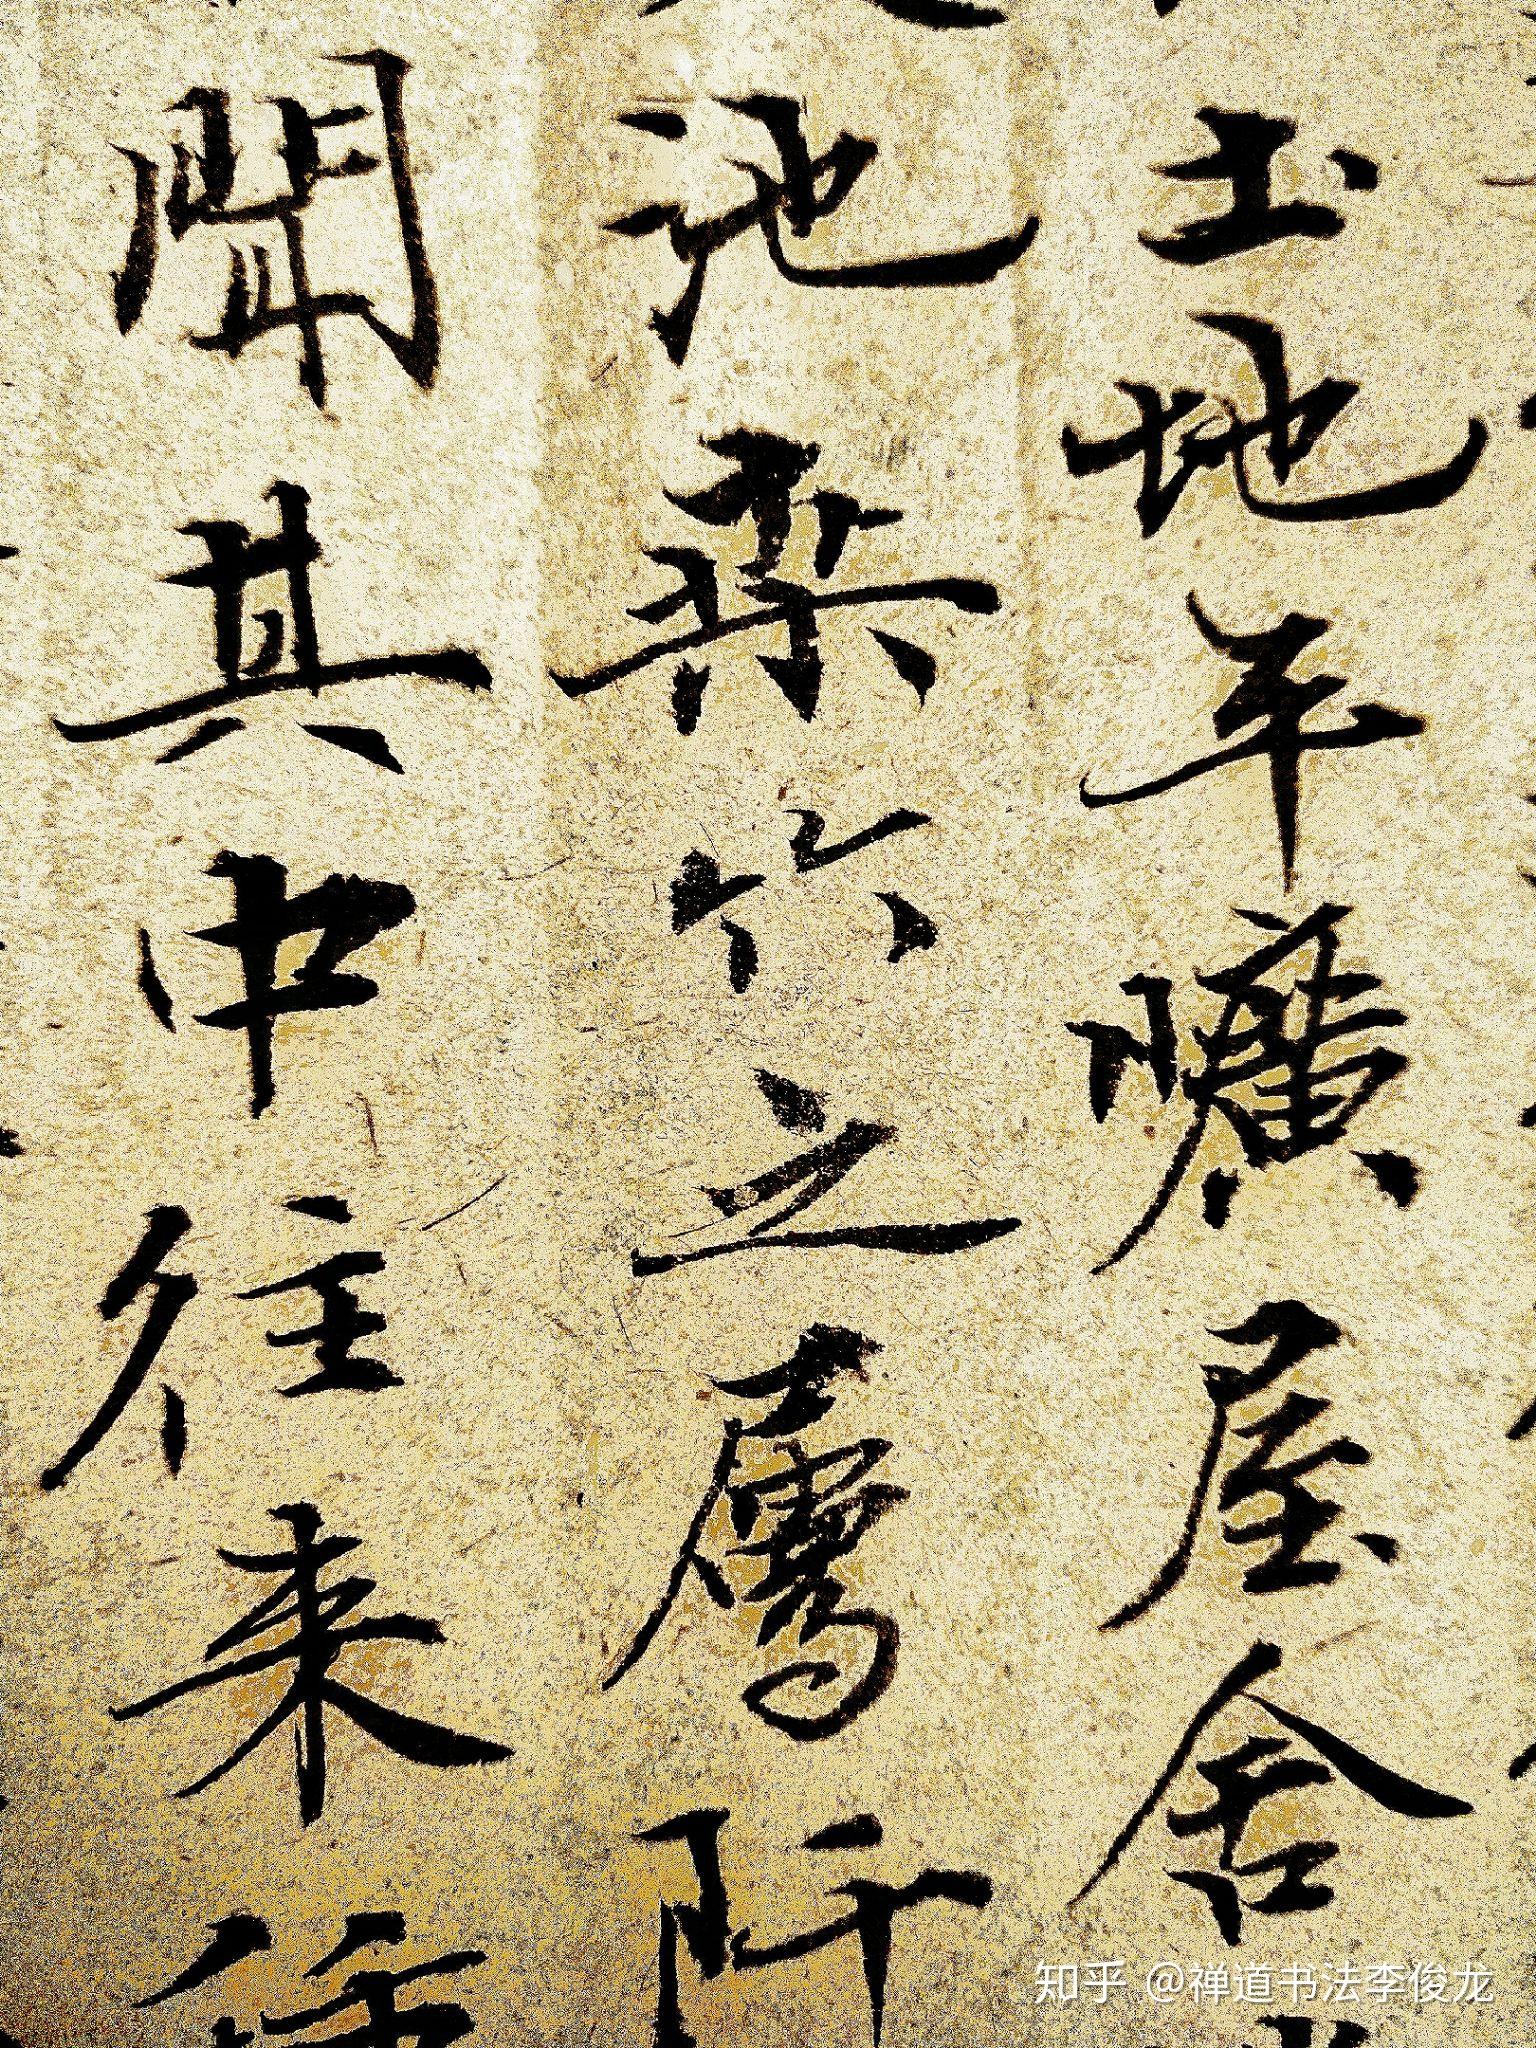 土地平曠屋舍
池桑竹之屬阡
聞其中往来
知乎 @禅道书法李俊龙